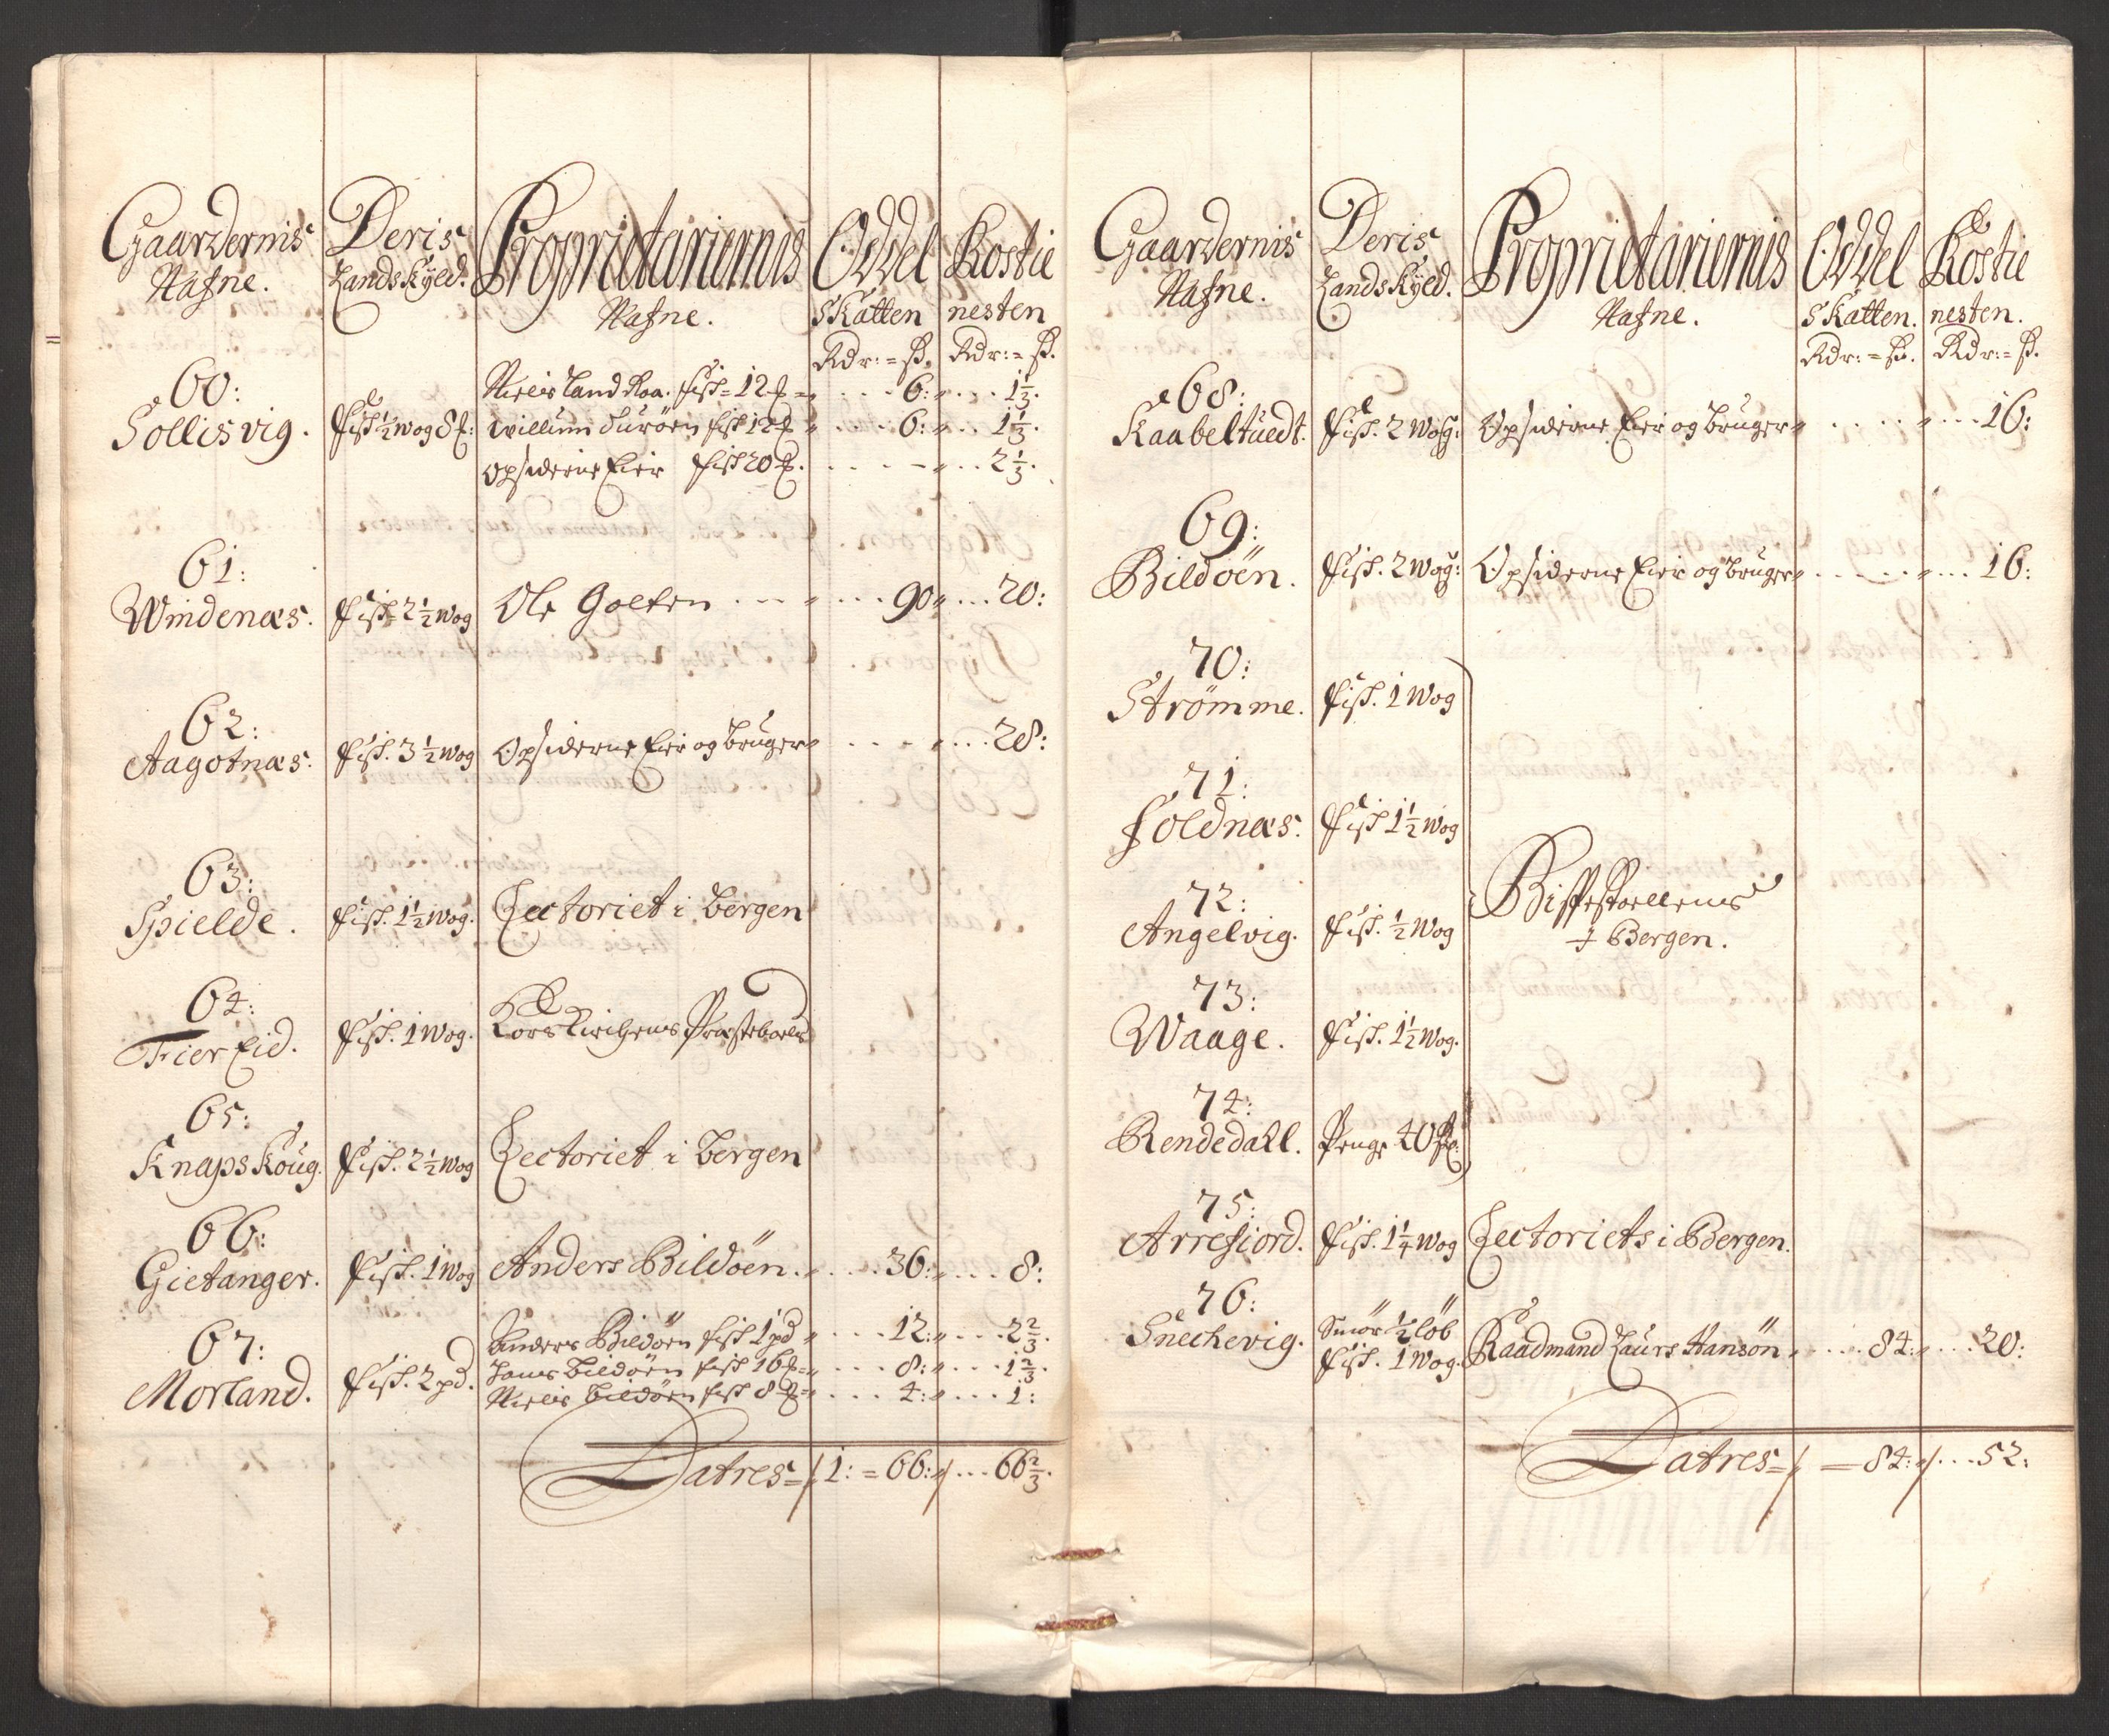 Gaardernis Deris Proprietariernis Oddel Rostie
Nafne. Landskyld. Nafne. Skatten nesten
Rdr: = ß. Rdr: = ß.
60: Niels Landroa. fisk = 12 = 6: 1 1/3.
Sollisvig. fisk 1/2 wog 8 Willum Turøen fisk 12 6: 1 1/3.
Opsiderne Eier fisk 20 2 1/3.
61:
Windenæs. fisk 2 1/2 wog Ole Golten 90 20:
62:
Aagotnæs. fisk. 3 1/2 wog Opsiderne Eier og bruger 28:
63:
Spielde. fisk. 1 1/2 wog. Lectoriet i bergen
64:
Trier Eid. fisk. 1 wog. Kors Kirchens Præsteboell
65:
Knapskoug. fisk. 2 1/2 wog Lectoriet i bergen
66:
Gietanger. fisk. 1 wog Anders Bildöen. 36: 8:
67: Anders Bildöen fisk 1 pd 12: 2 2/3.
Morland. fisk. 2 pd. Hans Bildöen fisk 16 8: 1 2/3.
Niels Bildöen fisk 8 4: 1:
Latres = 1: = 66: 66 2/3.
Gaardernis Deris Proprietariernis Oddel Rostie
Nafne. Landskyld. Nafne. Skatten. nesten.
Rdr: = ß. Rdr: = ß.
68:
Kaabeltuedt. fisk. 2 wog: Opsiderne Eier og bruger 16:
69:
Bildöen. fisk. 2 wog: Opsiderne Eier og bruger 16:
70:
Strømme. fisk. 1 wog
71:
Foldnæs. fisk 1 1/2 wog
72: Bispestoellens
Angelvig. fisk. 1/2 wog I Bergen.
73:
Waage. fisk. 1 1/2 wog.
74:
Rendedall. Penge 40
75:
Arrefiord. fisk. 1 1/4 wog Lectoriets i Bergen.
76: Smör 1/2 löb
Snechevig. fisk. 1 wog. Raadmand Laurs Hansön 84: 20:
Latres = 84: 52: